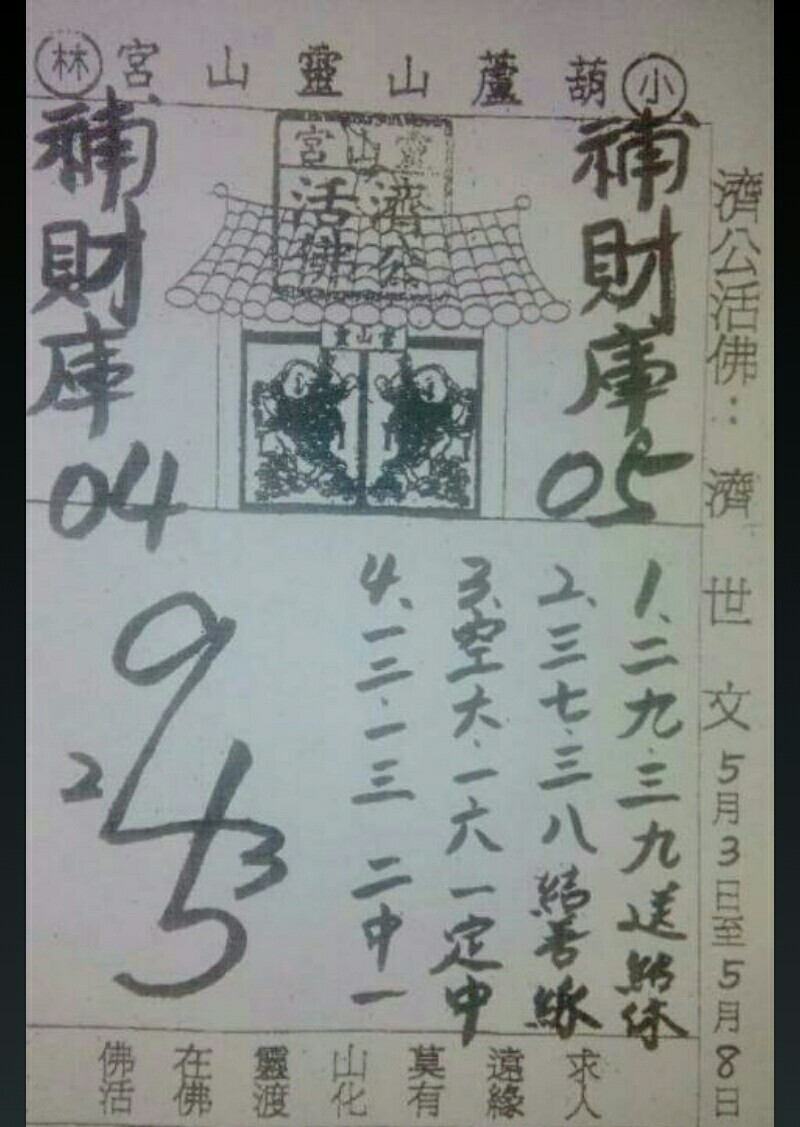 小葫蘆山靈山宮林
濟公活佛：濟世文5月3日至5月8日
靈山宮
濟公
活佛
靈山宮
補財庫
05
補財庫
04
1、二九·三九送給你
2、三七·三八結善緣
3、空六·一六一定中
4、一二·一三 二中一
9
2
4
3
5
求人
遠緣
莫有
山化
靈渡
在佛
佛活